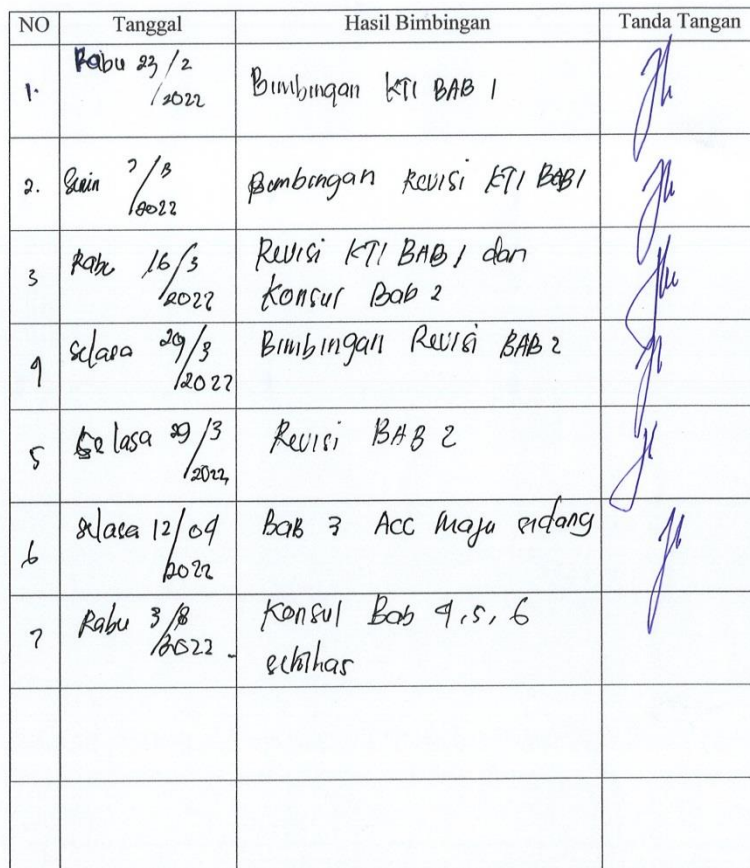 NO Tanggal Hasil Bimbingan Tanda Tangan
1. Rabu 23/2/2022 Bimbingan KTI BAB 1
2. Senin 7/3/2022 Bimbingan Revisi KTI BAB 1
3 Rabu 16/3/2022 Revisi KTI BAB 1 dan
Konsul Bab 2
4 Selasa 29/3/2022 Bimbingan Revisi BAB 2
5 Selasa 29/3/2022 Revisi BAB 2
6 Selasa 12/04/2022 Bab 3 Acc Maju sidang
7 Rabu 3/8/2022 Konsul Bab 4, 5, 6